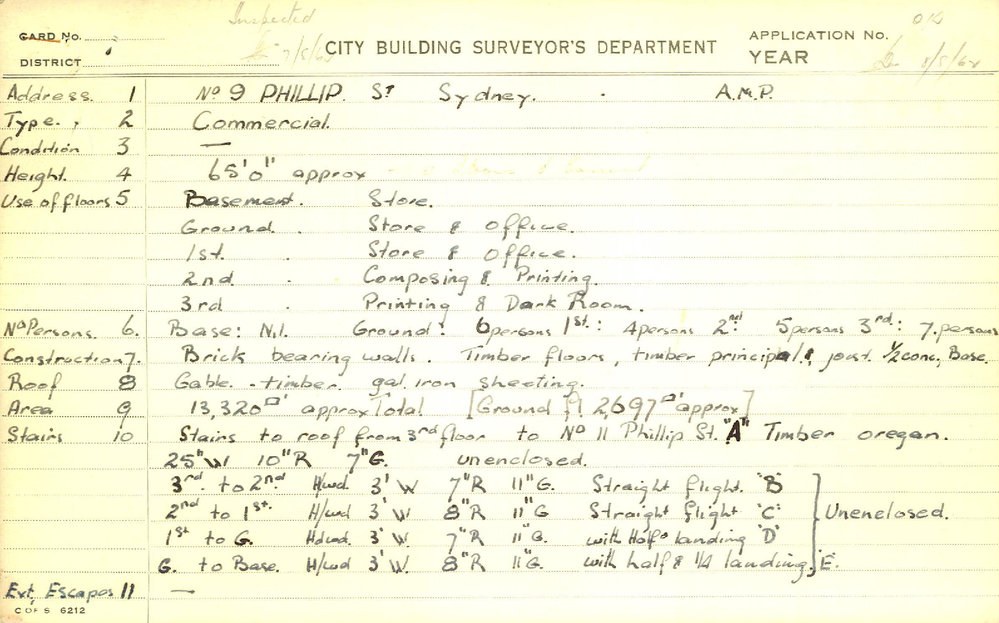 Inspected
7/5/62
OK
8/5/62
CARD No.
DISTRICT
CITY BUILDING SURVEYOR'S DEPARTMENT
APPLICATION No.
YEAR
Address. 1 No 9 PHILLIP. St Sydney. A.M.P.
Type. 2 Commercial.
Condition 3 —
Height. 4 65'0" approx
Use of floors 5 Basement. Store.
Ground. Store & office.
1st. Store & office.
2nd. Composing & Printing.
3rd. Printing & Dark Room.
No Persons. 6. Base: Nil. Ground: 6 persons 1st: 4 persons 2nd 5 persons 3rd: 7. persons
Construction 7. Brick bearing walls. Timber floors, timber principal & joist. ½ conc. Base.
Roof 8 Gable. - timber. gal. iron sheeting.
Area 9 13,320□' approx Total [Ground fl 2,697□' approx]
Stairs 10 Stairs to roof from 3rd floor to No 11 Phillip St. "A" Timber oregan.
25"W 10"R 7"G. unenclosed.
3rd. to 2nd H/wd. 3'W 7"R 11"G. Straight flight. "B"
2nd to 1st. H/wd 3'W. 8"R 11"G Straight flight "C" Unenclosed.
1st to G. Hdwd. 3'W. 7"R 11"G. with Half landing "D"
G. to Base. H/wd 3'W. 8"R 11"G. with half & ¼ landing. "E"
Ext. Escapes 11 —
C OF S 6212